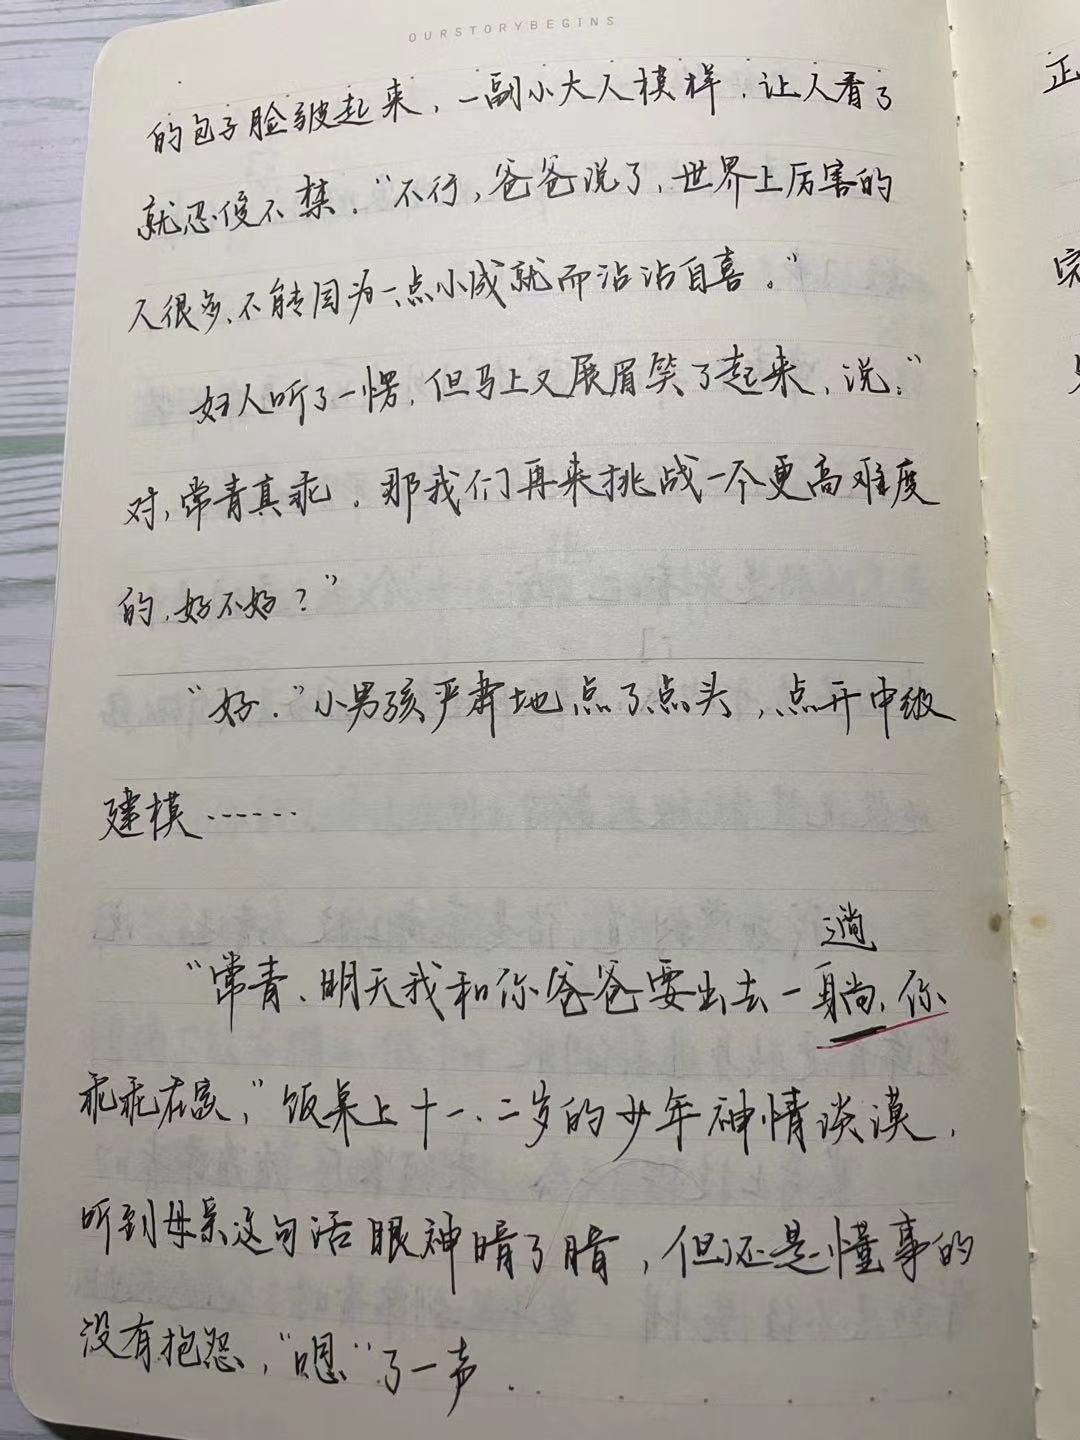 OURSTORYBEGINS
的包子脸皱起来，一副小大人模样，让人看了
就忍俊不禁。“不行，爸爸说了，世界上厉害的
人很多，不能因为一点小成就而沾沾自喜。”
妇人听了一愣，但马上又展眉笑了起来，说：“
对，常青真乖。那我们再来挑战一个更高难度
的，好不好？”
“好。”小男孩严肃地点了点头，点开中级
建模……
趟
“常青、明天我和你爸爸要出去一躺，你
乖乖在家，”饭桌上十一、二岁的少年神情淡漠，
听到母亲这句话眼神暗了暗，但还是懂事的
没有抱怨，“嗯”了一声．
正